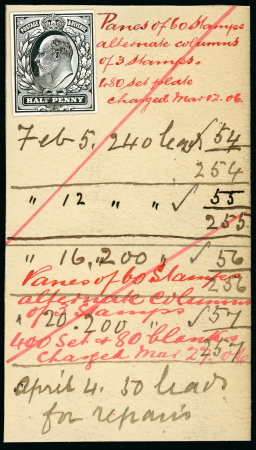 POSTAGE & REVENUE
HALF PENNY
Panes of 60 Stamps
alternate columns
of 3 stamps.
480 set plate
charged Mar 02. 06.
Feb 5. 240 leads √ 54
254
" 12 " " √ 55
255
" 16. 200 " √ 56
256
Panes of 60 Stamps
alternate columns
of 3 Stamps
" 20. 200 " √ 57
257
400 Set & 80 blanks
Charged Mar 27. 06
April 4. 50 leads
for repairs